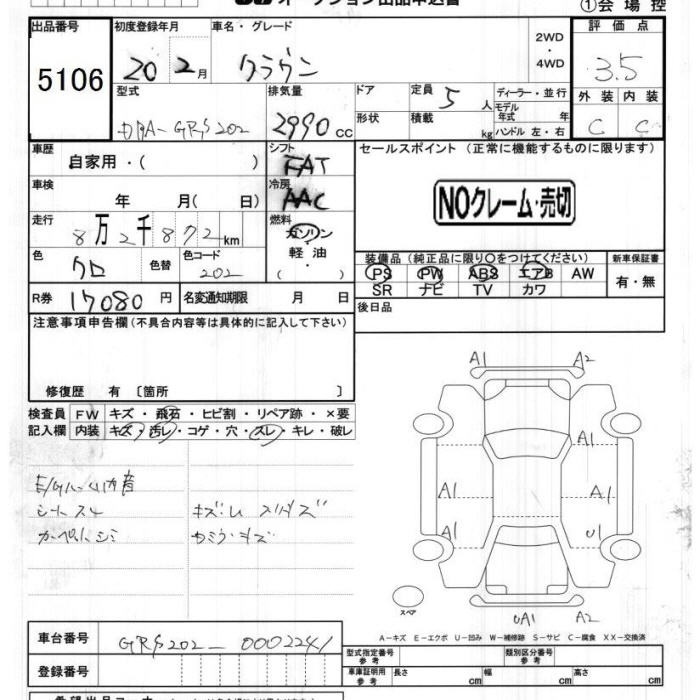 オークション出品申込書
①会場控
出品番号 初度登録年月 車名・グレード 評価点
5106 20 2月 クラウン 2WD・4WD 3.5
型式 排気量 ドア 定員 5人 ディーラー・並行 外装 内装
DBA-GRS202 2990 CC 形状 積載 kg モデル年式 年 ハンドル 左・右 C C
車歴 自家用・( ) シフト FAT セールスポイント (正常に機能するものに限ります)
車検 年 月( 日) 冷房 AAC NOクレーム・売切
走行 8万2千872km 燃料 ガソリン
色 クロ 色替 色コード 202 軽油 ・( )
装備品 (純正品に限り〇をつけてください) 新車保証書
PS PW ABS エアB AW 有・無
SR ナビ TV カワ
R券 17080円 名変通知期限 月 日 後日品
注意事項申告欄 (不具合内容等は具体的に記入して下さい)
修復歴 有 〔箇所 〕
検査員 FW キズ・飛石・ヒビ割・リペア跡・×要
記入欄 内装 キズ・汚レ・コゲ・穴・スレ・キレ・破レ
A1 A2
A1
A1 A1
A1 U1
シート スレ キズ・
カーペット シミ
スペア
UA1 A2
A−キズ E−エクボ U−凹み W−補修跡 S−サビ C−腐食 XX−交換済
車台番号 GRS202-0002241
型式指定番号 参考 類別区分番号 参考
登録番号 車庫証明用 参考 長さ cm 幅 cm 高さ cm
希望出品コーナー